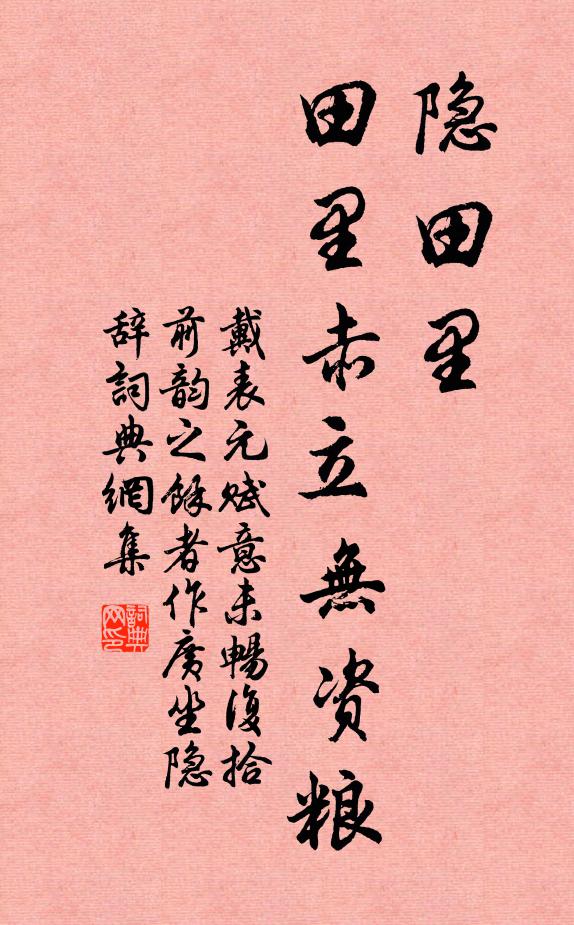 隐田里
田里赤立無资粮
戴表元赋意未暢復拾
前韵之餘者作廣坐隐
辞詞典網集
詞典
网印